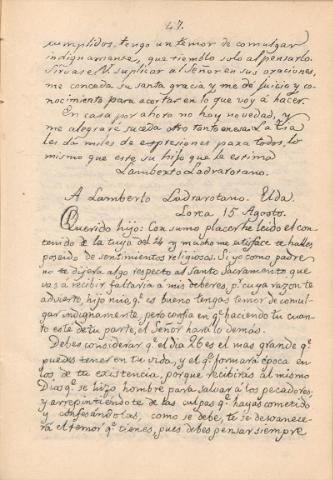 47.
cumplidos, tengo un temor de comulgar
indignamense, que tiemblo solo al pensarlo.
Sirvase V. suplicar al Señor en sus oraciones,
me conceda su santa gracia y me dé juicio y co-
nocimiento para acertar en lo que voy á hacer.
En casa por ahora no hay novedad, y
me alegraré suceda otro tanto en esa. La tia
les dá miles de expresiones para todos, lo
mismo que este su hijo que le estima
Lamberto Ladrarotano.
A Lamberto Ladrarotano. Elda.
Lorca 15 Agosto.
Querido hijo: Con sumo placer he leido el con-
tenido de la tuya del 24 y mucho me satisface te halles
poseido de sentimientos religiosos. Si yo como padre
no te dijera algo respecto al santo Sacramento que
vas á recibir faltaria á mis deberes, p.r cuya razon te
advierto, hijo mio, q.e es bueno tengas temor de comul-
gar indignamente, pero confia en q.e haciendo tu cuan-
to esté de tu parte, el Señor hará lo demás.
Debes considerar q.e el dia 26 es el mas grande q.e
puedes tener en tu vida, y el q.e formará época en
los de tu existencia, porque recibirás al mismo
Dios q.e se hizo hombre para salvar á los pecadores,
y arrepintiéndote de las culpas q.e hayas cometido
y confesándolas, como se debe, te se desvanece-
rá el temor q.e tienes, pues debes pensar siempre